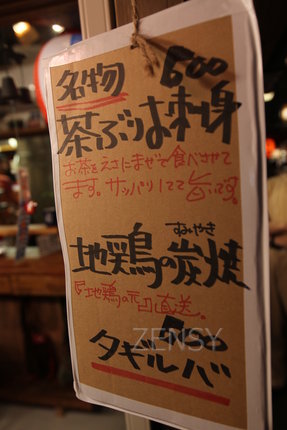 名物 600
茶ぶりお刺身
お茶をえさにまぜて食べさせて
ます。サッパリしてて旨いです。
すみやき
地鶏の炭焼
地鶏の
直送。
タギルバ
ZENSY